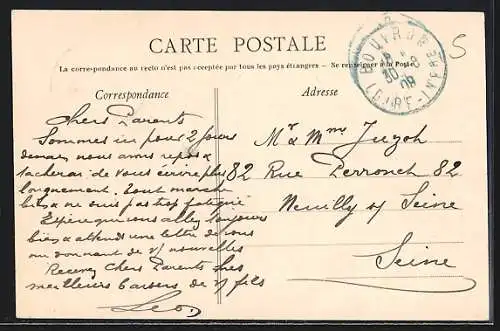 CARTE POSTALE
La correspondance au recto n'est pas acceptée par tous les pays étrangers. — Se renseigner à la Poste
Correspondance
Adresse
BOUVRON
30 - 8
08
LOIRE-INFRE
5
Chers Parents
Sommes ici pour 2 jours
demain nous avons repos &
tacherai de vous écrire plus
longuement. tout marche
bien & ne suis pas trop fatigué
Espère que vous allez toujours
bien & attends une lettre de vous
me donnant de v/ nouvelles
Recevez Chers Parents les
meilleurs baisers de v/ fils
Leon
Mr & Mme
82 Rue Perronet 82
Neuilly s/ Seine
Seine